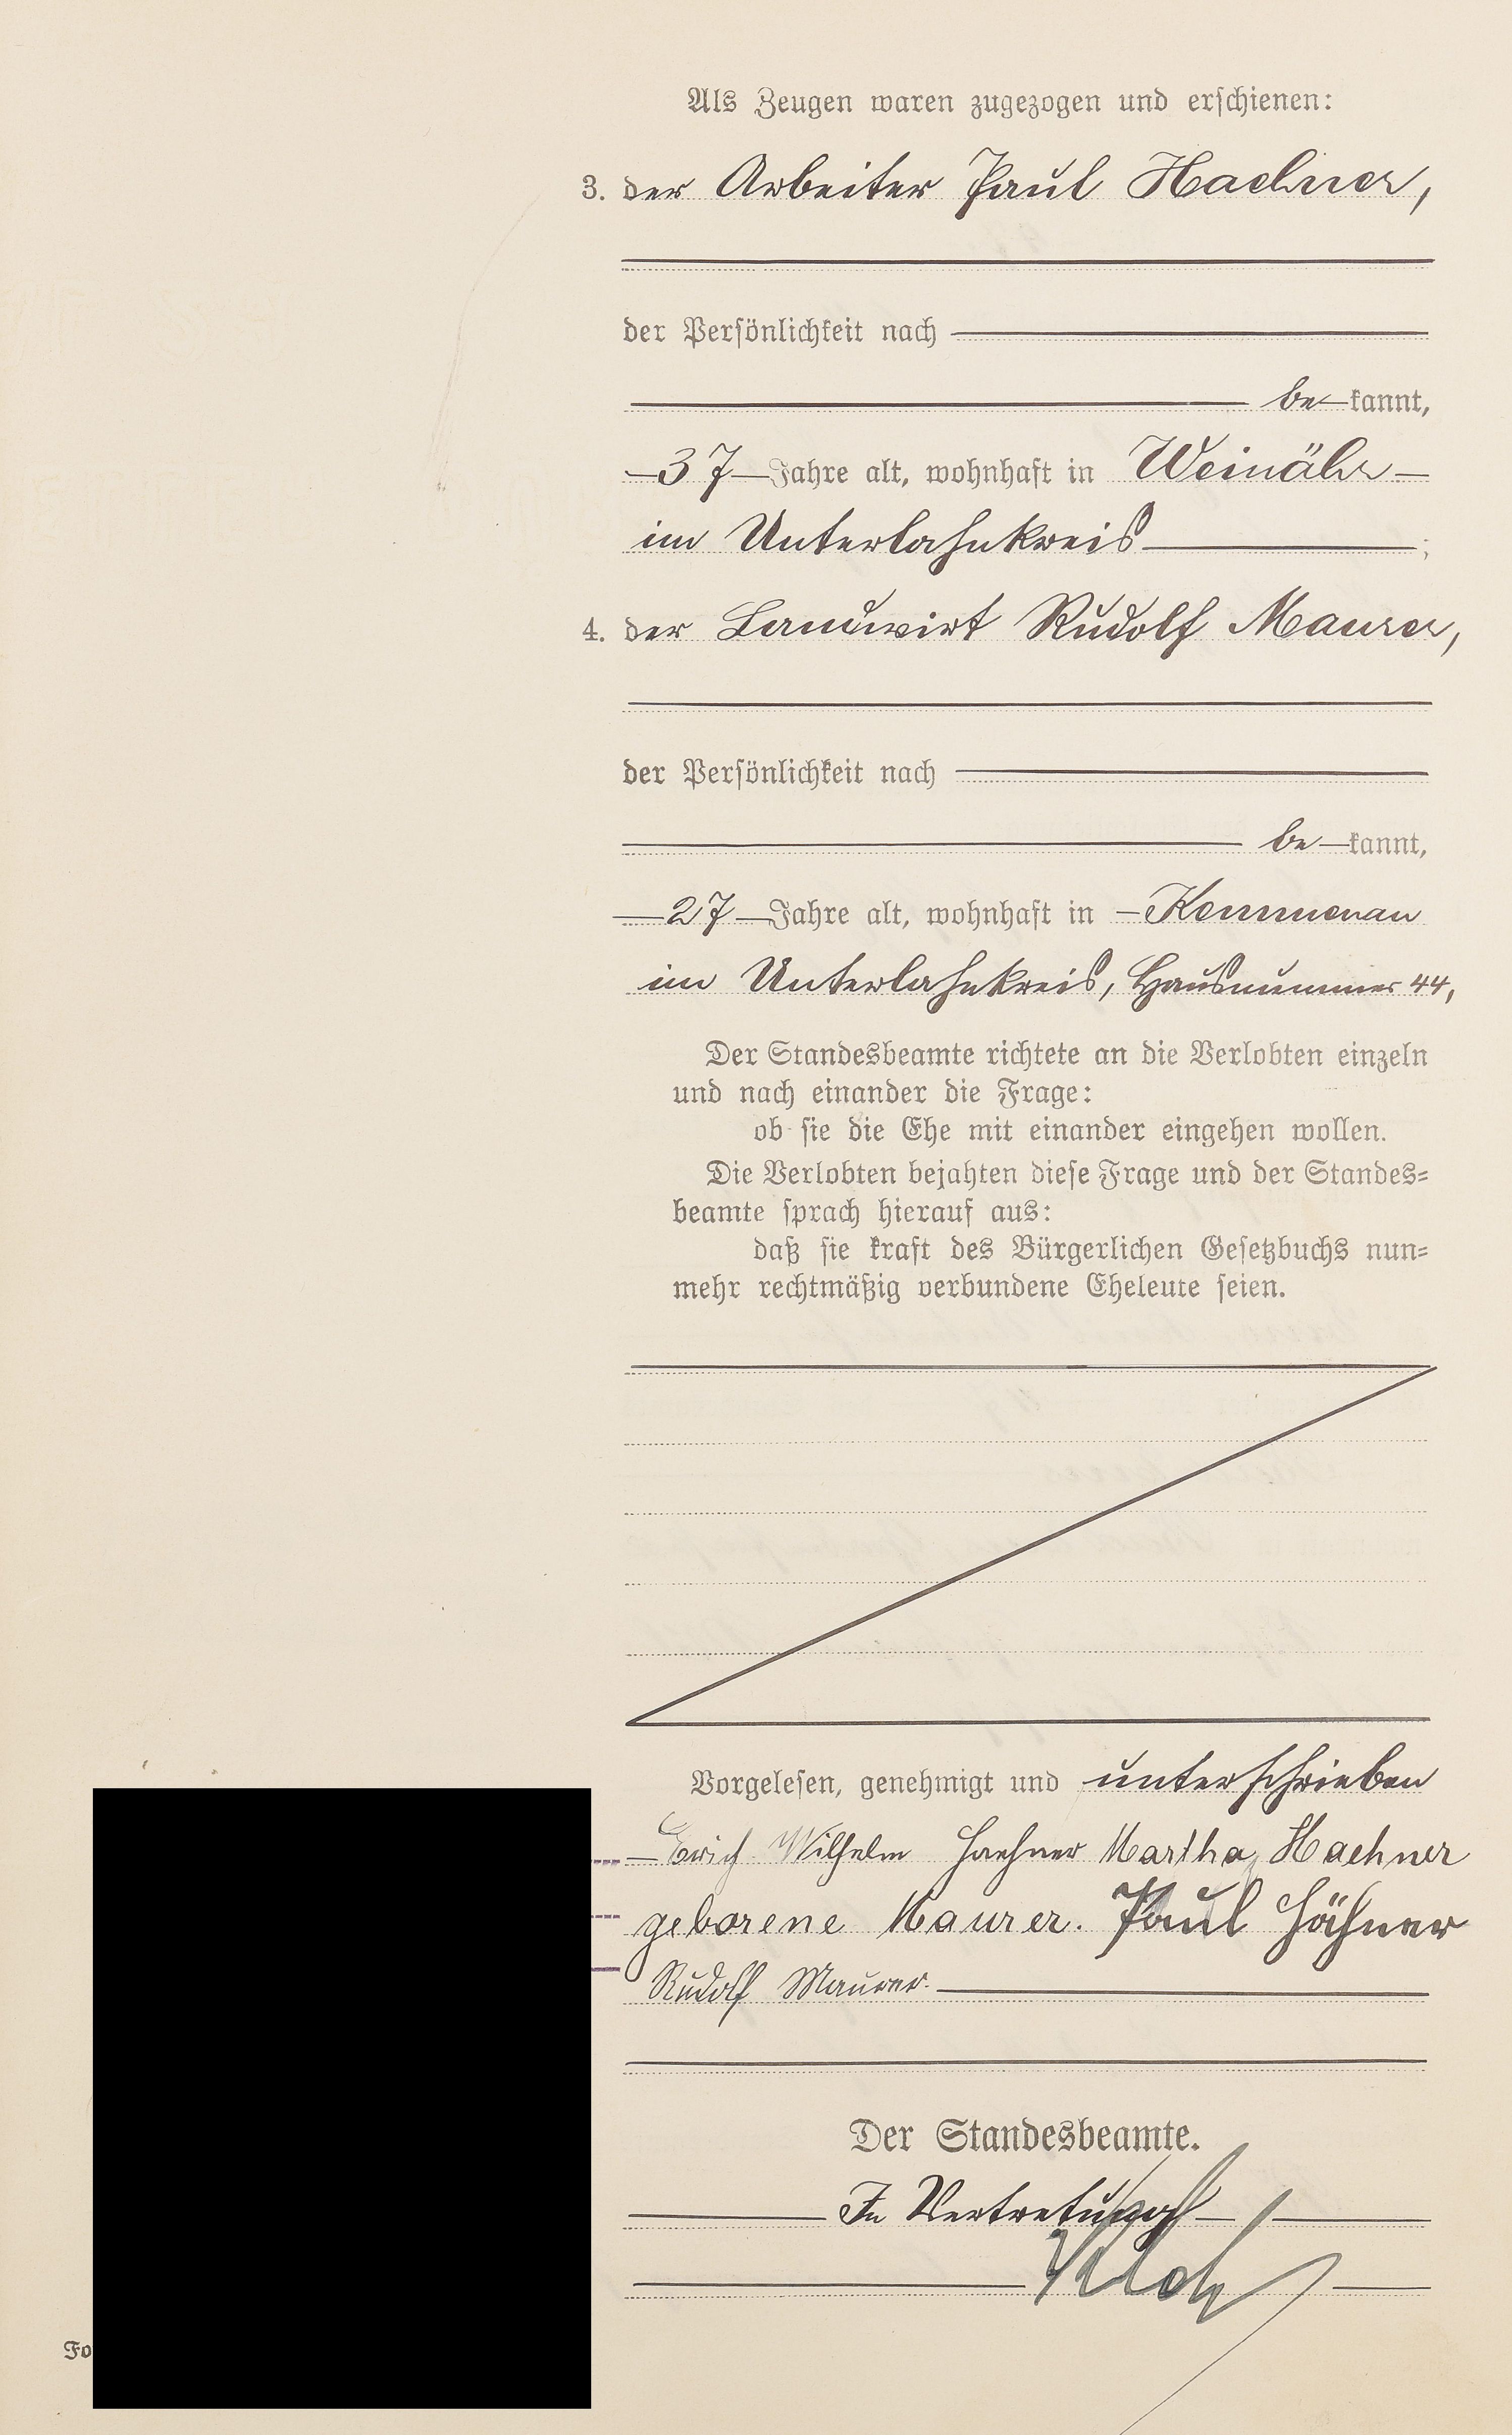 Als Zeugen waren zugezogen und erschienen:
3. der Arbeiter Paul Haehner,
der Persönlichkeit nach
be kannt,
37 Jahre alt, wohnhaft in Weinähr
im Unterlahnkreis ;
4. der Landwirt Rudolf Maurer,
der Persönlichkeit nach
be kannt,
27 Jahre alt, wohnhaft in Kemmenau
im Unterlahnkreis, Hausnummer 44,
Der Standesbeamte richtete an die Verlobten einzeln
und nach einander die Frage:
ob sie die Ehe mit einander eingehen wollen.
Die Verlobten bejahten diese Frage und der Standes=
beamte sprach hierauf aus:
daß sie kraft des Bürgerlichen Gesetzbuchs nun=
mehr rechtmäßig verbundene Eheleute seien.
Vorgelesen, genehmigt und unterschrieben
Erich Wilhelm Haehner Martha Haehner
geborene Maurer. Paul Hähner
Rudolf Maurer.
Der Standesbeamte.
In Vertretung
Fo